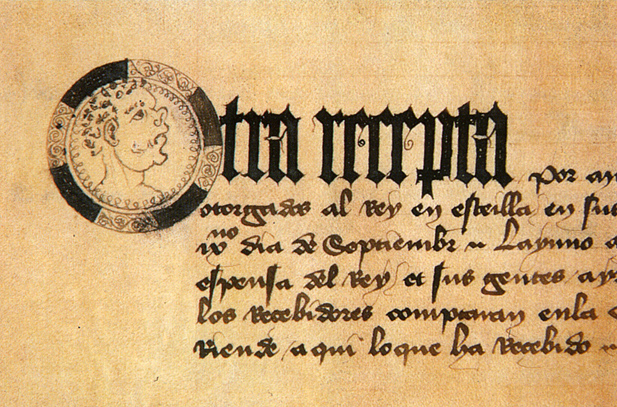 Otra recepta Por
otorgados al Rey en esteilla en sus
ixno dia de Septiembr
espensa del Rey et sus gentes
los recebidores comptaran enla
Riende aqui loque ha recebido